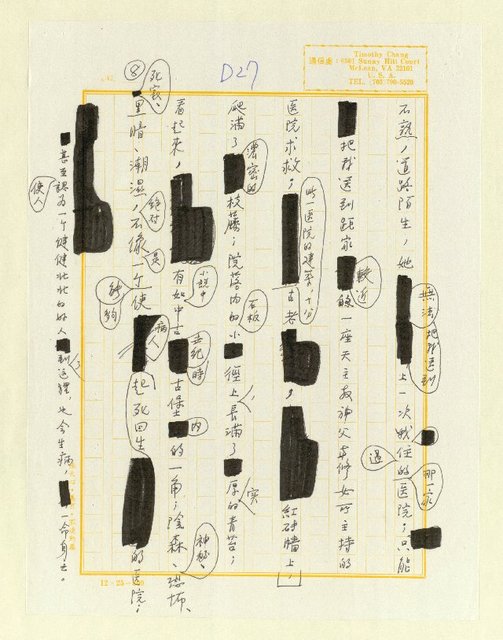 D27
Timothy Chang
通信處：6501 Sunny Hill Court
McLean, VA 22101
U. S. A.
TEL. 703-790-5520
不熟，道路陌生，她無法把我送到上一次我住過的那一家医院；只能
把我送到距家較近的一座天主教神父与修女所主持的
医院求救；這一医院的建築十分古老，紅砖牆上，
爬滿了濃密的枝藤；院落內的石板小徑上，長滿了厚實的青苔；
看起來，有如小説中中古世紀時古堡內的一角；陰森、神秘、恐怖、
⑧
死寂、黑暗、潮濕，絕对不像是一个能夠使病人起死回生的医院；
甚至認為一个健健壯壯的好人到了這裡，也会使人生病，一命身亡。
12-25-